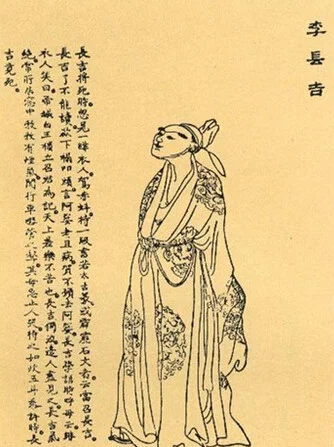 李長吉
長吉將死時忽見一緋衣人駕赤虬持一版書若太古篆或霹靂石文者云當召長吉
長吉了不能讀欻下榻叩頭言阿㜷老且病賀不願去阿㜷長吉學語時呼母云緋
衣人笑曰帝成白玉樓立召君為記天上差樂不苦也長吉獨泣邊人盡見之長吉氣
絕常所居窗中勃勃有煙氣聞行車嘒管之聲其母急止人哭待之如炊五斗黍許時長
吉竟死